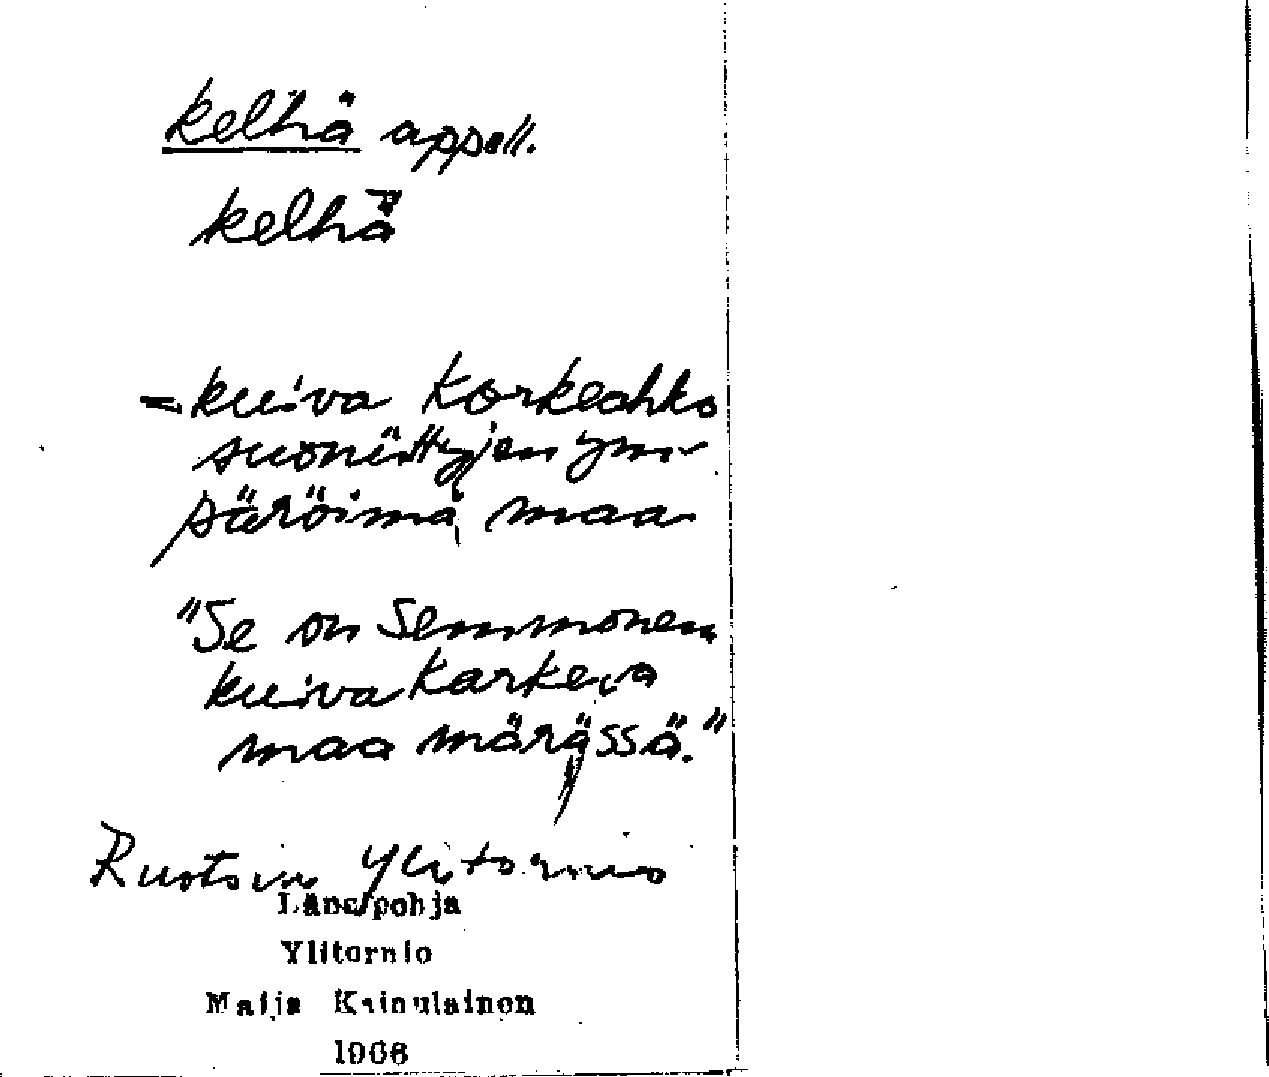 kelhä appell.
kelhǟ
= kuiva korkeahko
suoniittyjen ym-
päröimä maa
"Se on semmonen
kuiva karkeva
maa märässä."
Ruotsin Ylitornio
Länsipohja
Ylitornio
Maija Kainulainen
1966